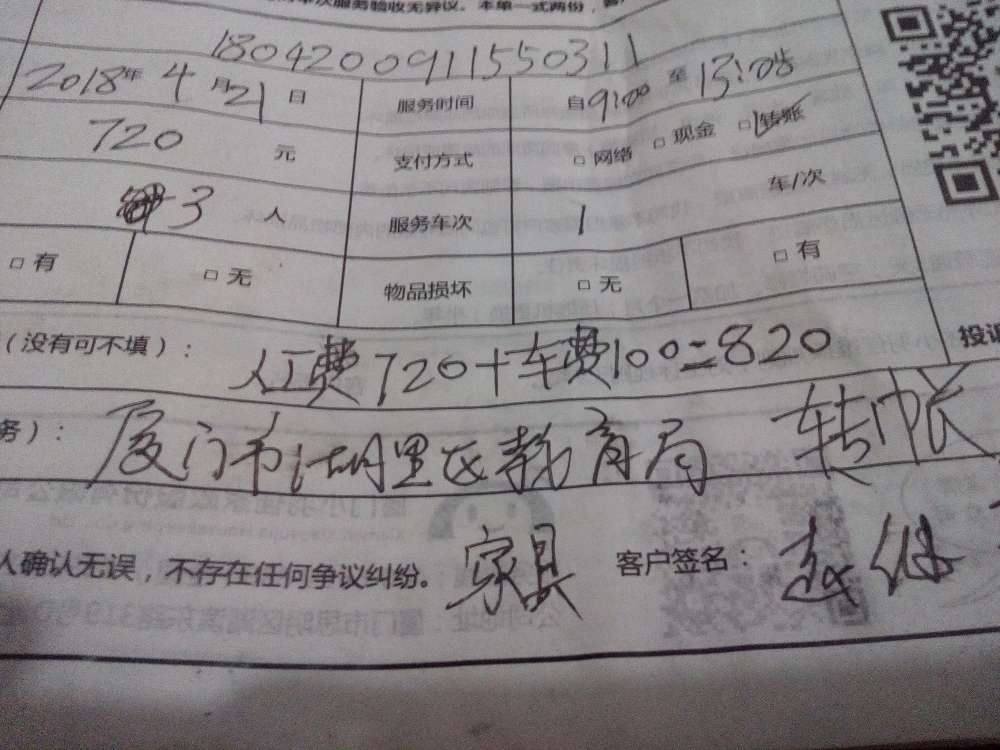 次服务验收无异议。本单一式两份，
18042009111550311
2018年4月21日 服务时间 自9:00至13:08
720元 支付方式 □网络 □现金 □转账
3人 服务车次 1 车/次
□有 □无 物品损坏 □无 □有
（没有可不填）： 人工费720+车费100=820 投诉
务）： 厦门市湖里区教育局 转帐
人确认无误，不存在任何争议纠纷。 家具 客户签名：